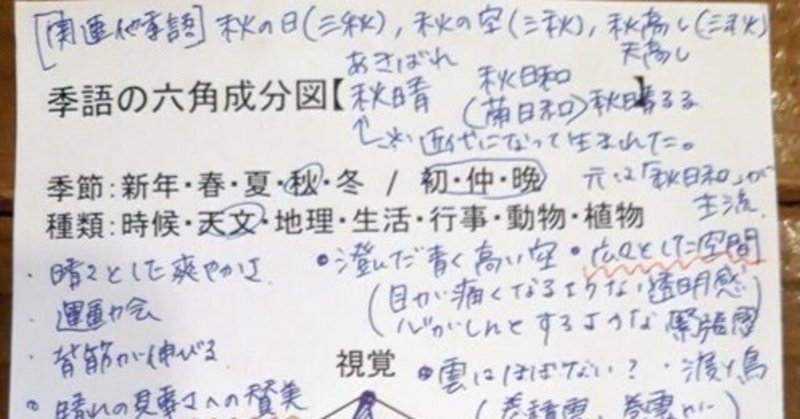 [関連他季語] 秋の日(三秋), 秋の空(三秋), 秋高し(三秋)
天高し
あきばれ
季語の六角成分図【秋晴 秋日和 (菊日和) 秋晴るる】
近代になって生まれた。
季節:新年・春・夏・秋・冬 / 初・仲・晩
元は「秋日和」が主流
種類:時候・天文・地理・生活・行事・動物・植物
・晴々とした爽やかさ
・澄んだ青く高い空 ・広々とした空間
(目が痛くなるような透明感)
・運動会
(心がしんとするような緊張感
・背筋が伸びる
視覚
・雲はほぼない? ・渡り鳥
・晴れの見事さへの賛美
(巻積雲、巻雲